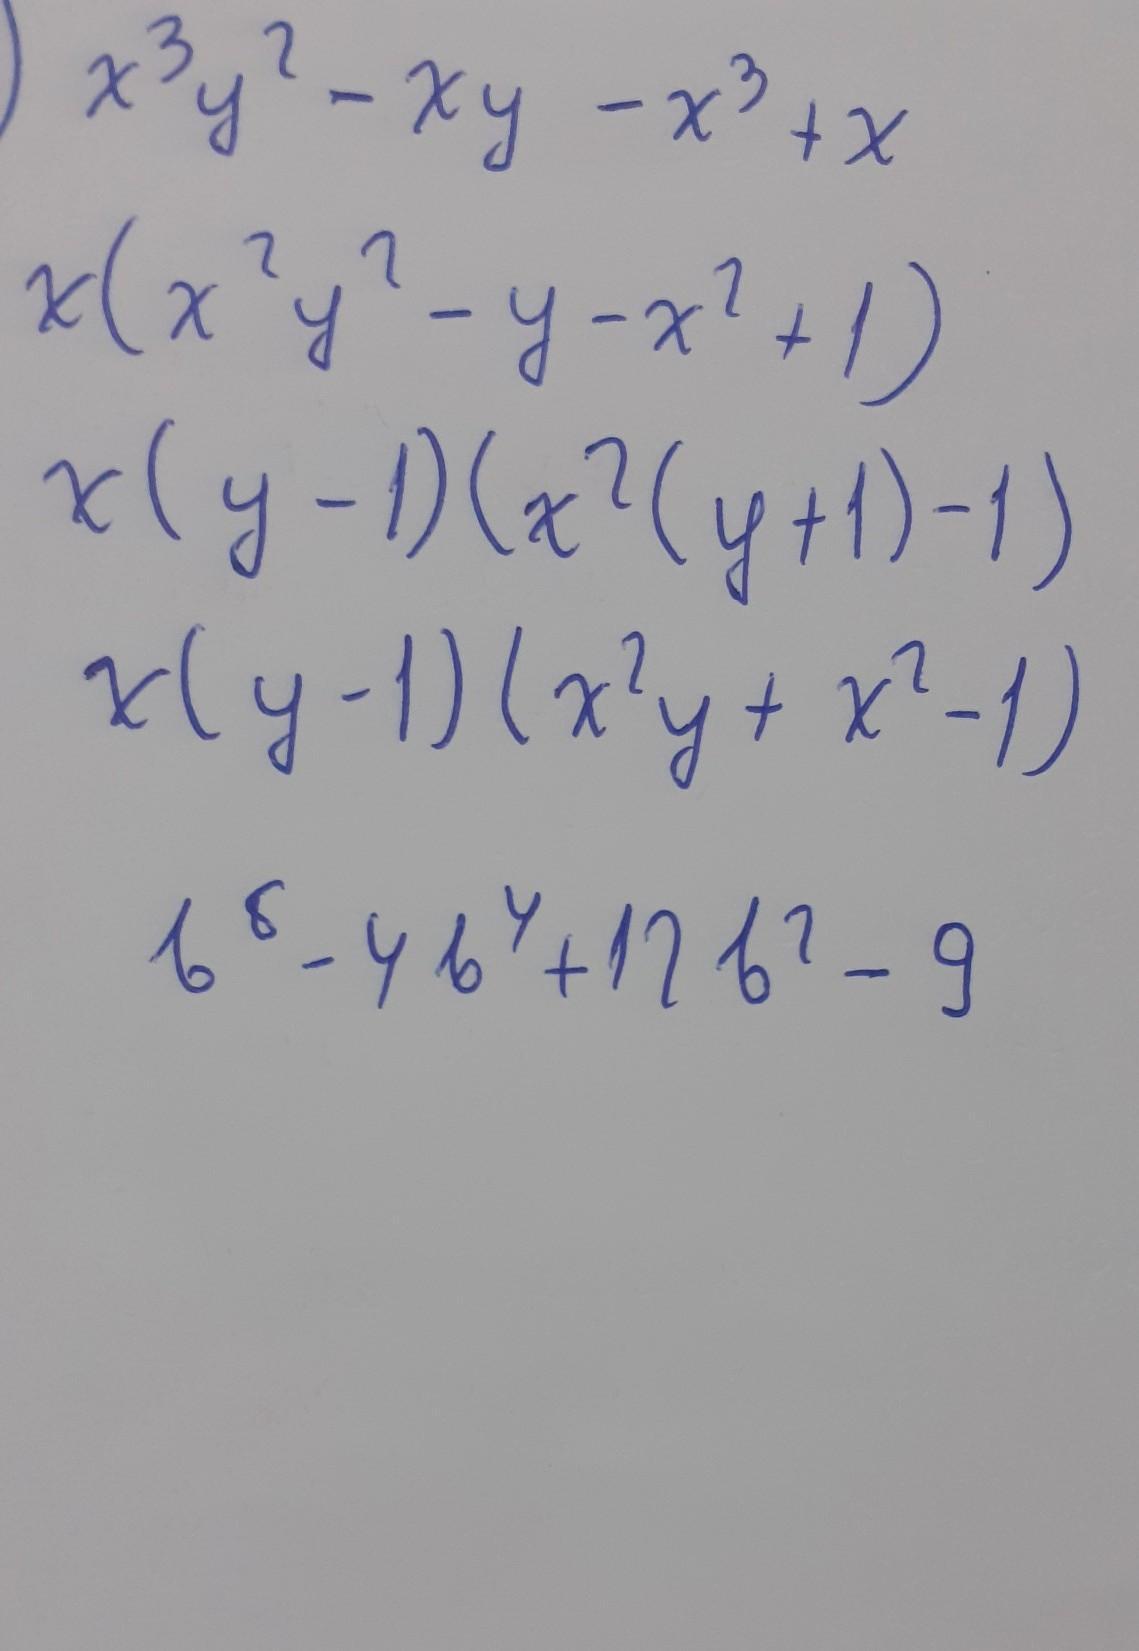 ) x³y² - xy - x³ + x
x(x²y² - y - x² + 1)
x(y - 1)(x²(y + 1) - 1)
x(y - 1)(x²y + x² - 1)
b⁸ - 4b⁴ + 12b² - 9